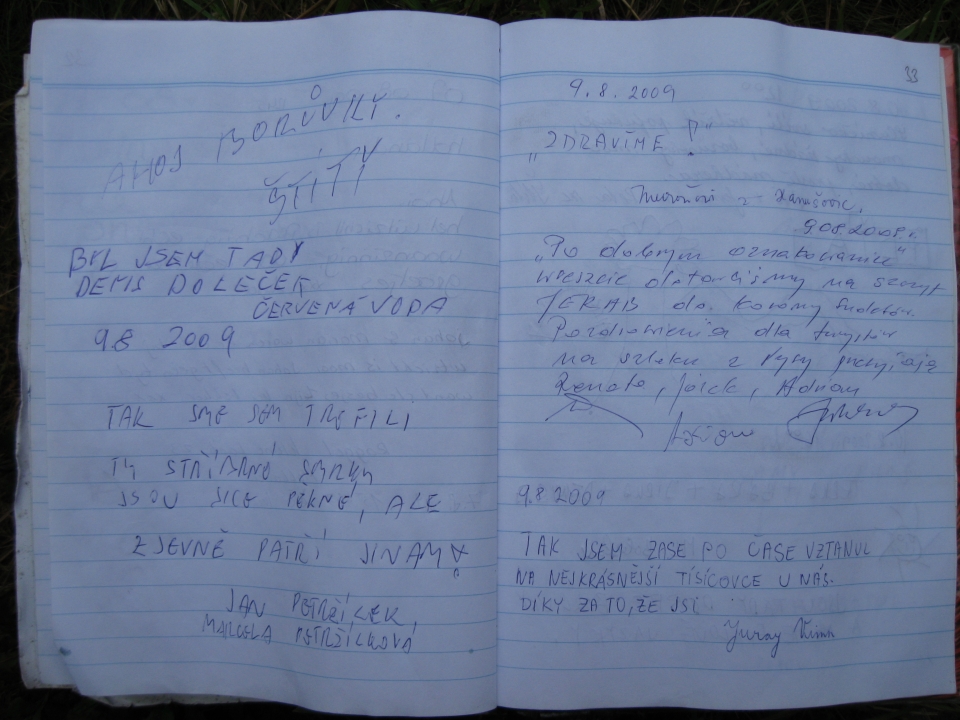 AHOJ BORŮVKY.
ŠTÍTY
BYL JSEM TADY
DENIS DOLEČEK
ČERVENÁ VODA
9.8 2009
TAK SME SEM TREFILI
TY STŘÍBRNÉ SMRKY
JSOU SICE PĚKNÉ, ALE
ZJEVNĚ PATŘÍ JINAM
JAN PETRŽÍLEK,
MARCELA PETRŽÍLKOVÁ
33
9.8.2009
„ZDRAVÍME!"
z Hanušovic,
9.08.2009r.
„Po dobrym oznakowaniu"
wreszcie dotarliśmy na szczyt
JERAB do Korony Sudetów.
Pozdrowienia dla turystów
na szlaku z Nysy przesyłają
Renata, Jacek, Adrian
9.8 2009
TAK JSEM ZASE PO ČASE VZTANUL
NA NEJKRÁSNĚJŠÍ TISÍCOVCE U NÁS.
DÍKY ZA TO, ŽE JSI
Juray